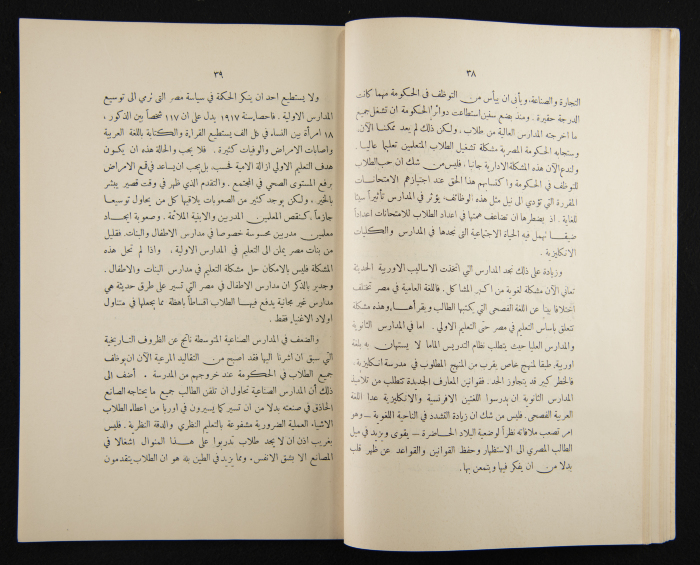 ٣٨
التجارة والصناعة، ويأبى ان ييأس من التوظف في الحكومة مهما كانت
الدرجة حقيرة. ومنذ بضع سنين استطاعت دوائر الحكومة ان تشغل جميع
ما اخرجته المدارس العالية من طلاب، ولكن ذلك لم يعد ممكنا الآن.
وستجابه الحكومة المصرية مشكلة تشغيل الطلاب المتعلمين تعلما عاليا.
ولندع الآن هذه المشكلة الادارية جانبا، فليس من شك ان حب الطلاب
للتوظف في الحكومة واكتسابهم هذا الحق عند اجتيازهم الامتحانات
المقررة التي تؤدي الى نيل مثل هذه الوظائف، يؤثر في المدارس تأثيراً سيئا
للغاية. اذ يضطرها ان تضاعف همتها في اعداد الطلاب للامتحانات اعداداً
ضيقا تهمل فيه الحياة الاجتماعية التي نجدها في المدارس والكليات
الانكليزية.
وزيادة على ذلك نجد المدارس التي اتخذت الاساليب الاوربية الحديثة
تعاني الآن مشكلة لغوية من اكبر المشاكل. فاللغة العامية في مصر تختلف
اختلافا بينا عن اللغة الفصحى التي يكتبها الطالب ويقرأها، وهذه مشكلة
تتعلق بأساس التعليم في مصر حتى التعليم الاولي. اما في المدارس الثانوية
والمدارس العليا حيث يتطلب نظام التدريس الماما لا يستهان به بلغة
اوربية، طبقا لمنهج خاص يقرب من المنهج المطلوب في مدرسة انكليزية.
فالخطر كبير قد يتجاوز الحد. فقوانين المعارف الجديدة تتطلب من تلاميذ
المدارس الثانوية ان يدرسوا اللغتين الافرنسية والانكليزية عدا اللغة
العربية الفصحى. فليس من شك ان زيادة التشدد في الناحية اللغوية – وهو
امر تصعب ملافاته نظراً لوضعية البلاد الحاضرة – يقوي ويزيد في ميل
الطالب المصري الى الاستظهار وحفظ القوانين والقواعد عن ظهر قلب
بدلا من ان يفكر فيها ويتمعن بها.
٣٩
ولا يستطيع احد ان ينكر الحكمة في سياسة مصر التي ترمي الى توسيع
المدارس الاولية. فاحصاء سنة ١٩١٧ يدل على ان ١١٧ شخصاً بين الذكور،
١٨ امرأة بين النساء في كل الف يستطيع القراءة والكتابة باللغة العربية
واصابات الامراض والوفيات كثيرة. فلا يجب والحالة هذه ان يكون
هدف التعليم الاولي ازالة الامية فحسب، بل يجب ان يساعد في قمع الامراض
برفع المستوى الصحي في المجتمع. والتقدم الذي ظهر في وقت قصير يبشر
بالخير، ولكن يوجد كثير من الصعوبات يلاقيها كل من يحاول توسيعا
جازماً. كنقص المعلمين المدربين والابنية الملائمة. وصعوبة ايجاد
معلمين مدربين محسوسة خصوصا في مدارس الاطفال والبنات. فقليل
من بنات مصر يملن الى التعليم في المدارس الاولية. واذا لم تحل هذه
المشكلة فليس بالامكان حل مشكلة التعليم في مدارس البنات والاطفال.
وجدير بالذكر ان مدارس الاطفال في مصر التي تسير على طرق حديثة هي
مدارس غير مجانية يدفع فيها الطلاب اقساطاً باهظة مما يجعلها في متناول
اولاد الاغنياء فقط.
والضعف في المدارس الصناعية المتوسطة ناتج عن الظروف التاريخية
التي سبق ان اشرنا اليها فقد اصبح من التقاليد المرعية الآن ان يوظف
جميع الطلاب في الحكومة عند خروجهم من المدرسة. أضف الى
ذلك أن المدارس الصناعية تحاول ان تلقن الطالب جميع ما يحتاجه الصانع
الحاذق في صنعته بدلا من ان تسير كما يسيرون في اوربا من اعطاء الطلاب
الاشياء العملية الضرورية مشفوعة بالتعليم النظري والدقة النظرية. فليس
بغريب اذن ان لا يجد طلاب تدربوا على هذا المنوال اشغالا في
المصانع الا بشق الانفس. ومما يزيد في الطين بلة هو ان الطلاب يتقدمون